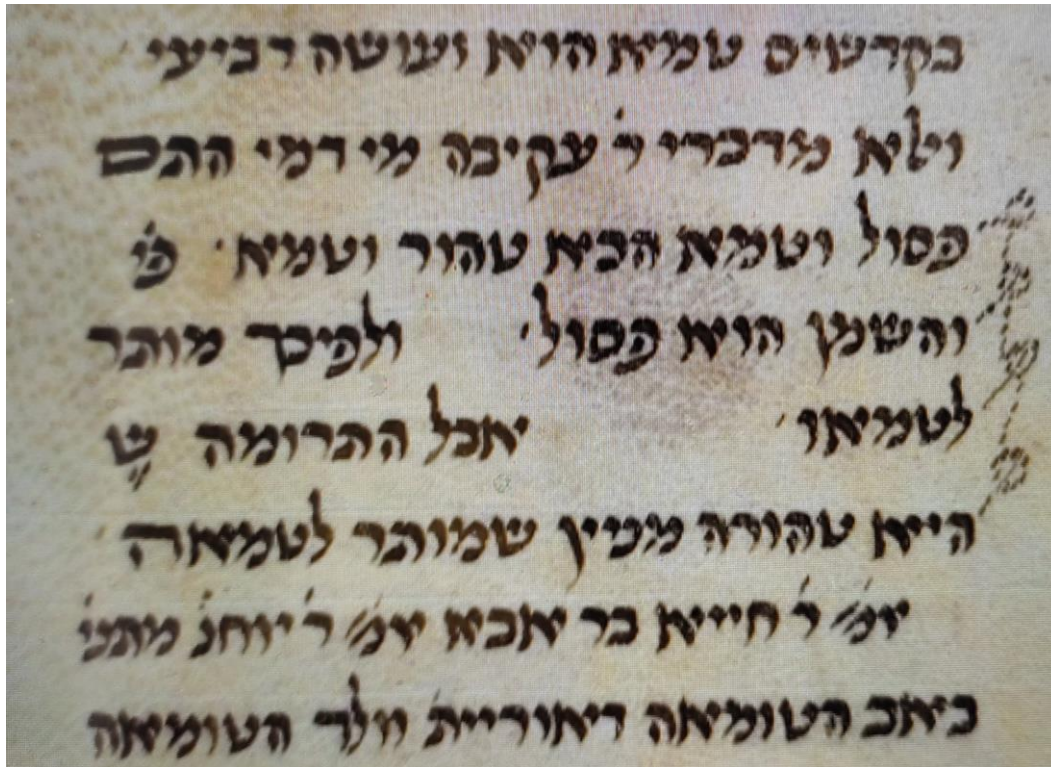 בקדשים טמא הוא ועושה רביעי
ולא מדברי ר' עקיבה מי דמי התם
פסול וטמא הכא טהור וטמא · פי'
והשמן הוא פסול · ולפיכך מותר
לטמאו · אכל התרומה ש
הייא טהורה מניין שמותר לטמאה
אמ' ר' חייא בר אבא אמ' ר' יוחנ' מתני'
באב הטומאה דאוריית ולד הטומאה